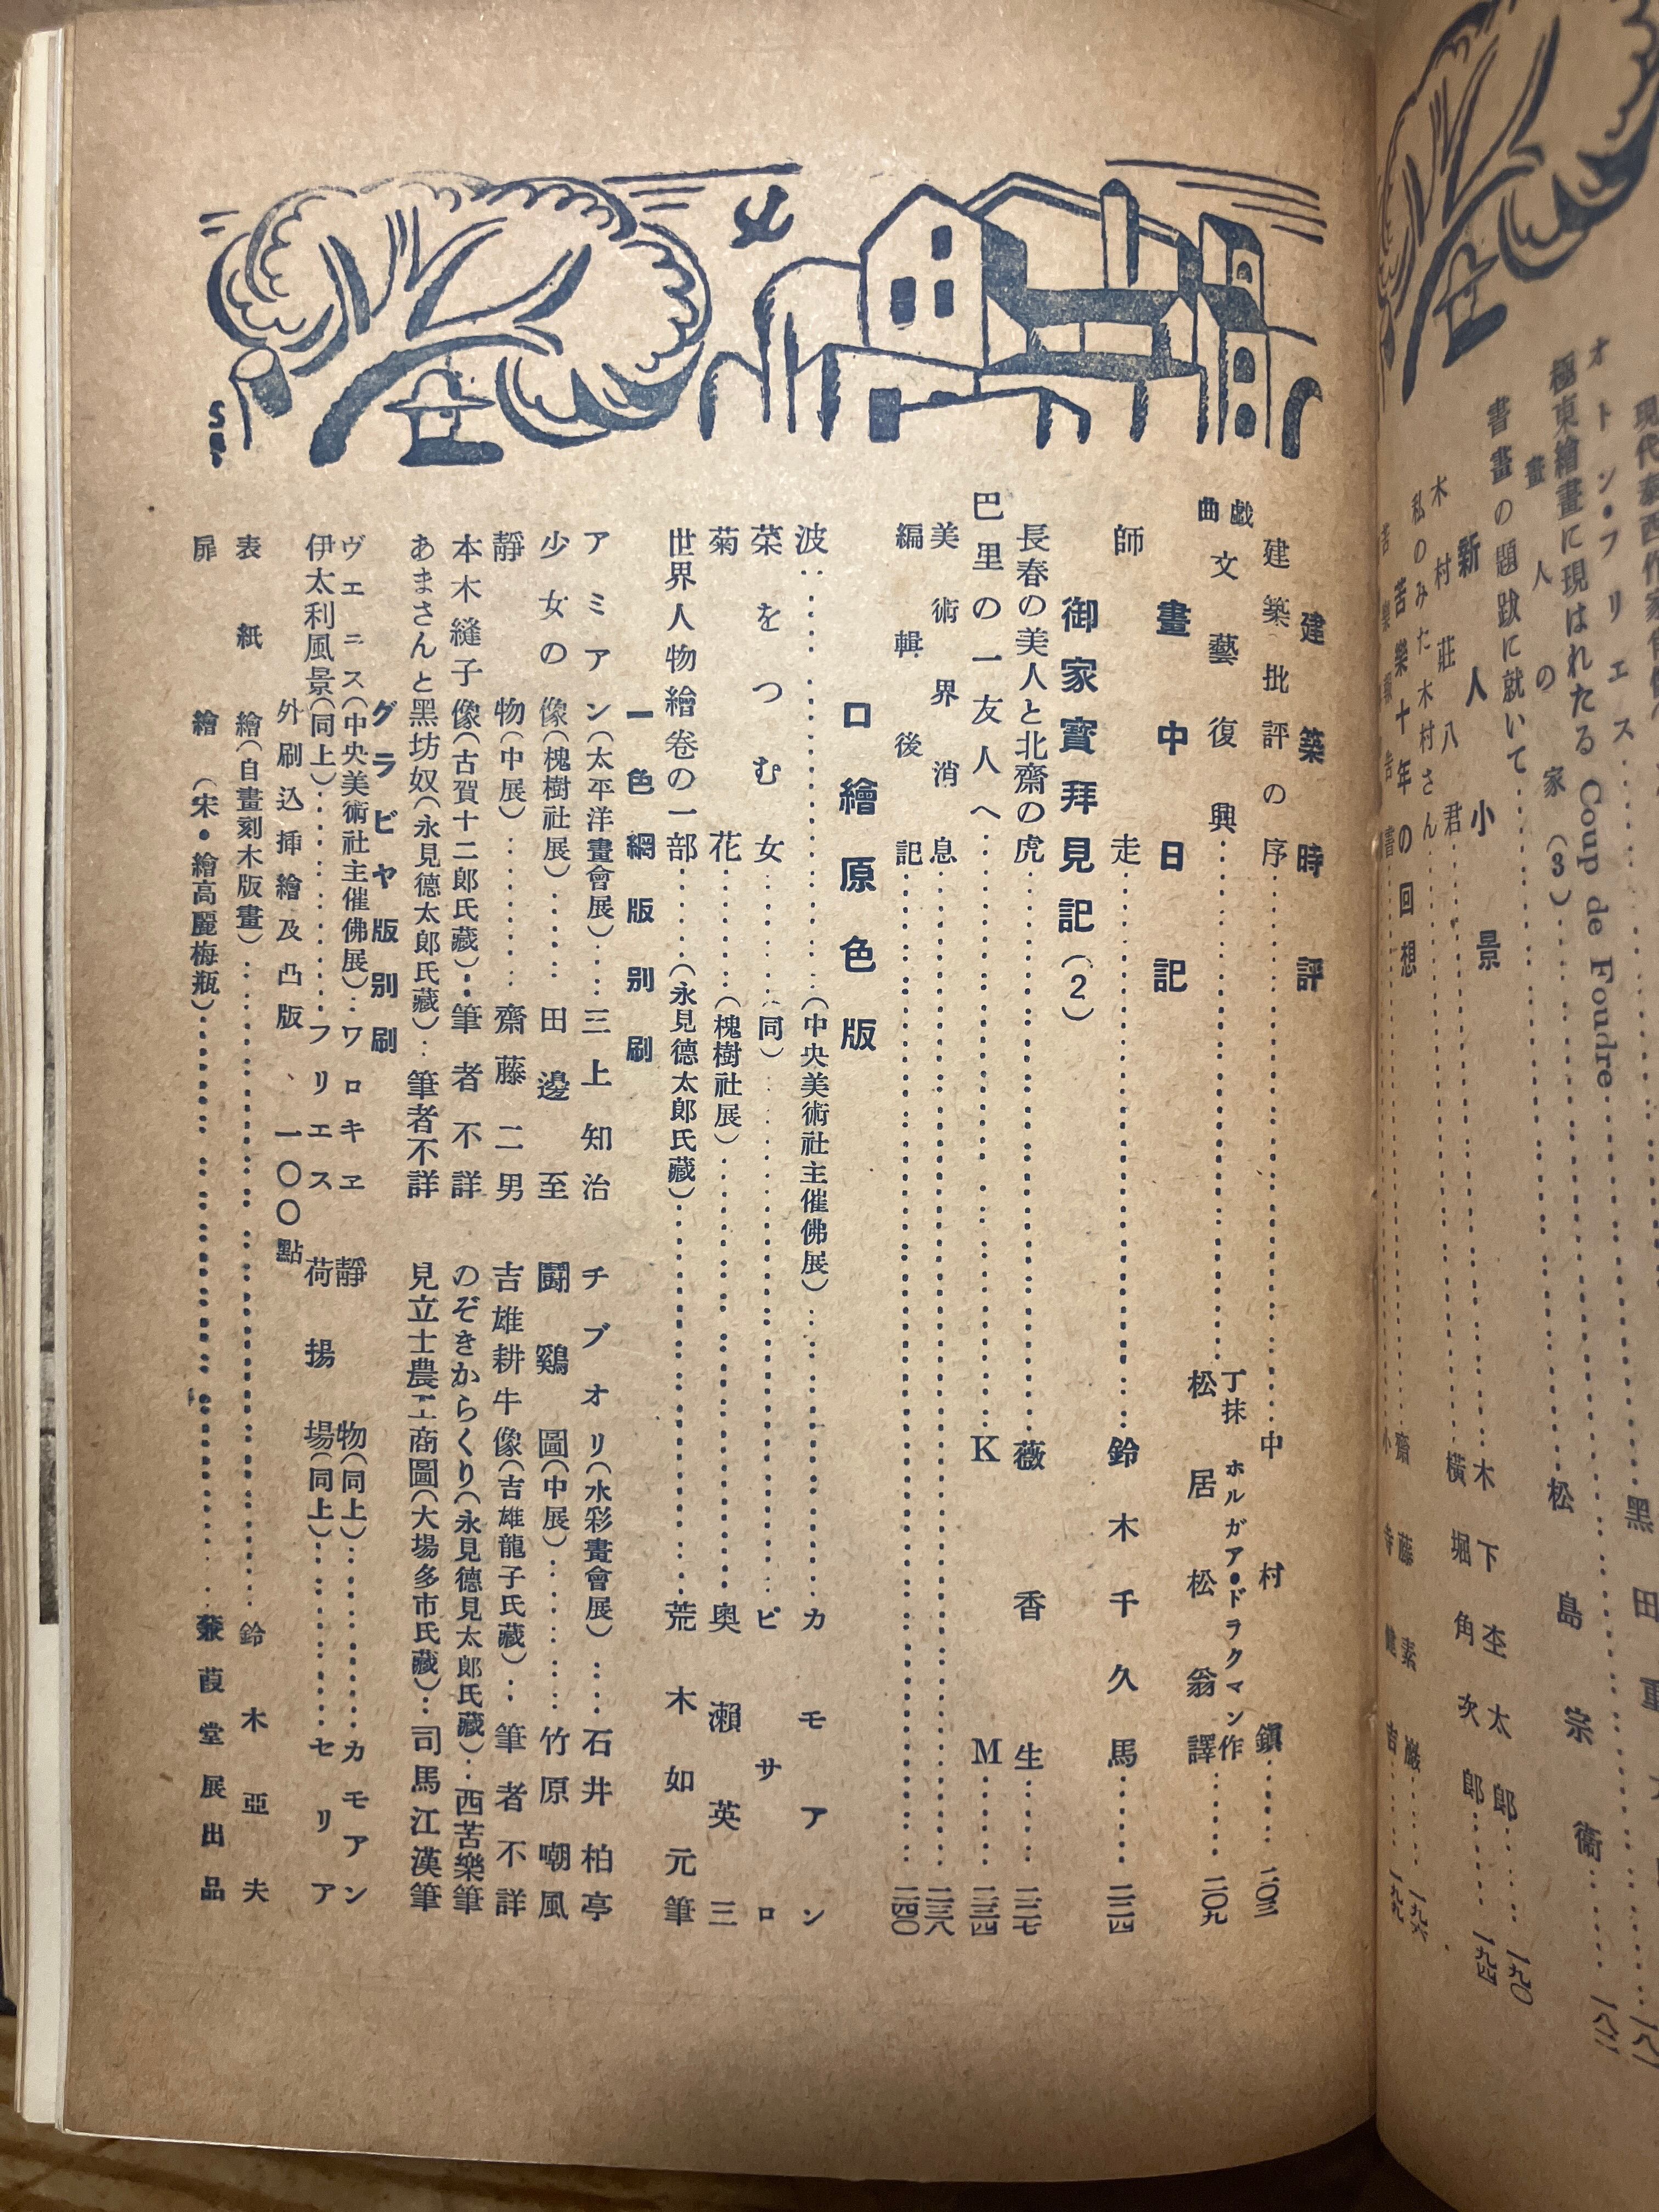 新人小景
木村莊八君
木下杢太郎
横堀角次郎
私のみた木村さん
苦樂十年の回想
書畫の題跋に就いて
畫人の家(3)
松島宗衞
極東繪畫に現はれたる Coup de Foudre
オトン・フリエス
建築時評
建築批評の序 中村鎭 二〇三
戯曲 文藝復興 丁抹 ホルガア・ドラクマン作 松居松翁譯 二〇九
畫中日記
師走 鈴木千久馬 二二四
御家寳拜見記(2)
長春の美人と北齋の虎 薇香生 二二七
巴里の一友人へ K M 二三四
美術界消息 二三八
編輯後記 二四〇
口繪原色版
波 (中央美術社主催佛展) カモアン
菜をつむ女 (同) ピサロ
菊花 (槐樹社展) 奥瀬英三
世界人物繪卷の一部 (永見德太郎氏藏) 荒木如元筆
一色網版別刷
アミアン(太平洋畫會展) 三上知治 チブオリ(水彩畫會展) 石井柏亭
少女の像(槐樹社展) 田邊至 鬪鷄圖(中展) 竹原嘲風
靜物(中展) 齋藤二男 吉雄耕牛像(吉雄龍子氏藏) 筆者不詳
本木縫子像(古賀十二郎氏藏) 筆者不詳 のぞきからくり(永見德見太郎氏藏) 西苦樂筆
あまさんと黑坊奴(永見德太郎氏藏) 筆者不詳 見立士農工商圖(大場多市氏藏) 司馬江漢筆
グラビヤ版別刷
ヴエニス(中央美術社主催佛展) ワロキヱ 靜物(同上) カモアン
伊太利風景(同上) フリエス 荷揚場(同上) セリア
外刷込挿繪及凸版、一〇〇點
表紙繪(自畫刻木版畫) 鈴木亞夫
扉繪(宋・繪高麗梅瓶) 蒹葭堂展出品